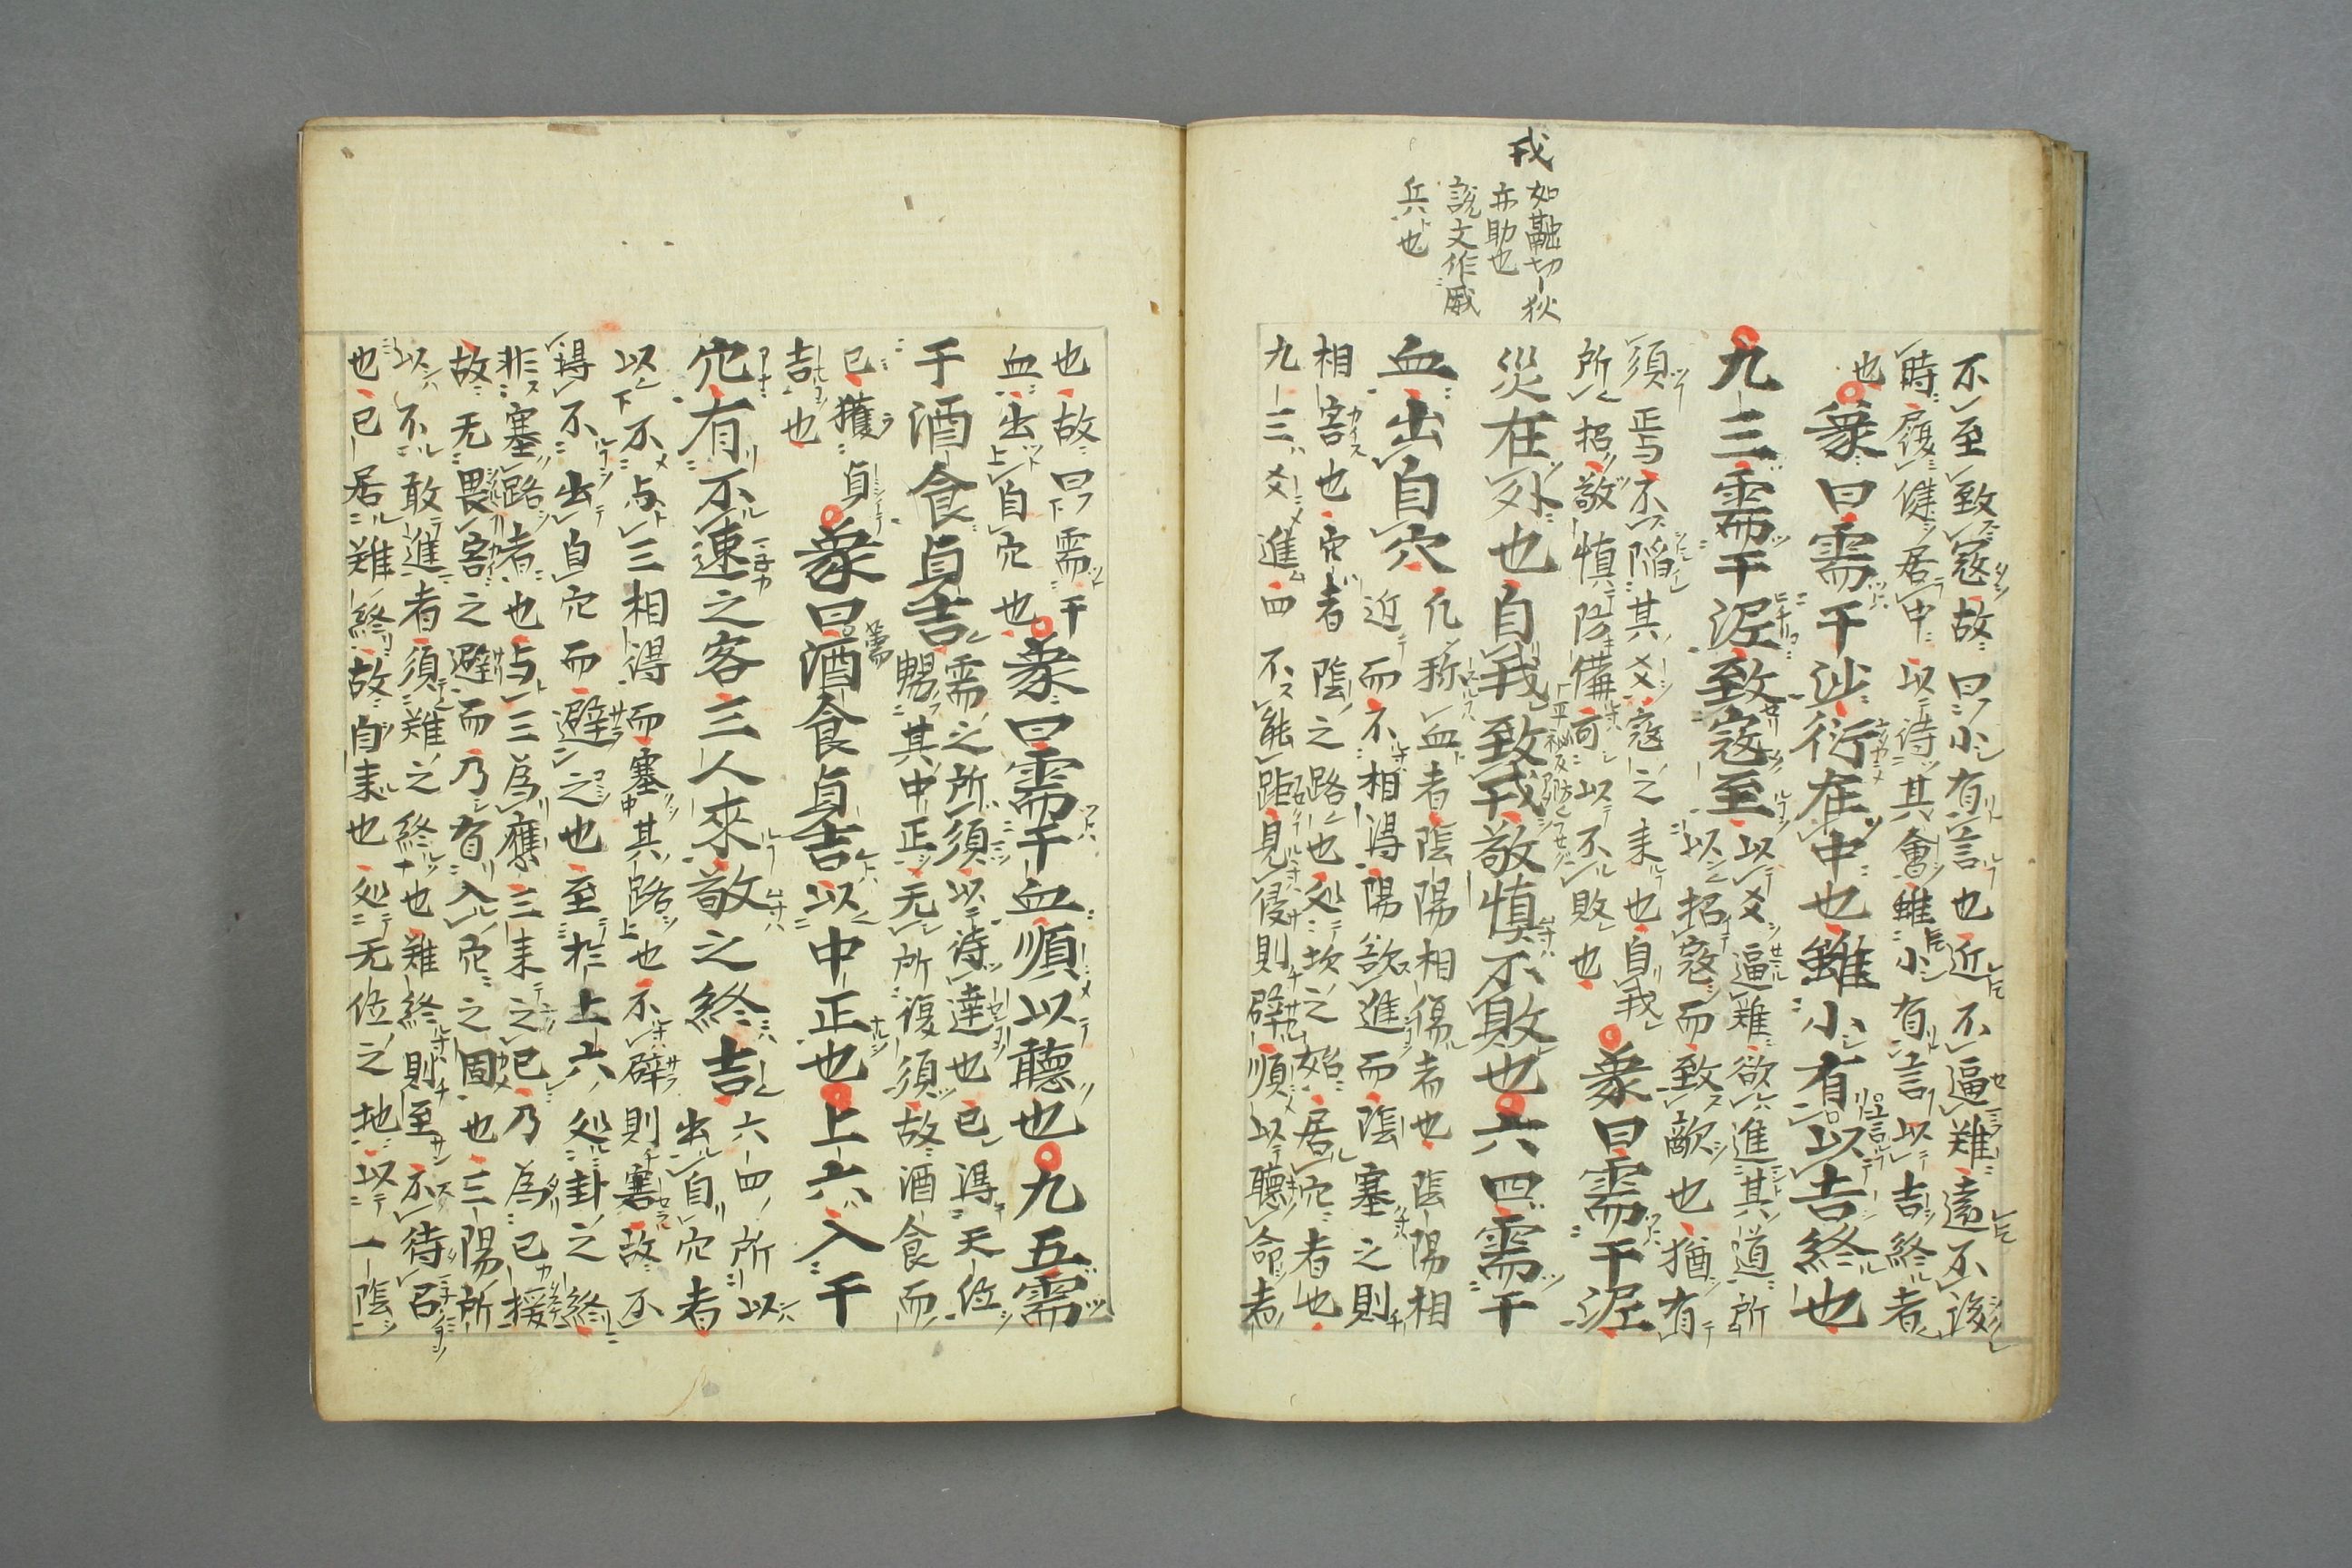 戎
如融切狄
亦助也
說文作𢦦
兵也
不至致寇故曰小有言也近不逼難遠不後
時履健居中以待其會雖小有言以吉終者
也象曰需于沙衍在中也雖小有以吉終也
九三需于泥致寇至
以爻逼難欲進其道所
以招寇而致敵也猶有
須焉不陷其爻寇之来也自我
所招敬慎防備可以不敗也
象曰需于泥
災在外也自我致戎敬慎不敗也六四需于
血出自穴
凡称血者陰陽相傷者也陰陽相
近而不相得陽欲進而陰塞之則
相害也穴者陰之路也処坎之始居穴者也
九三爻進四不能距見侵則辟順以聽命者
也故曰需于
血出自穴也
象曰需于血順以聽也九五需
于酒食貞吉
需之所須以待達也已得天位
暢其中正无所復須故酒食而
已獲貞
吉也
象曰酒食貞吉以中正也上六入于
穴有不速之客三人來敬之終吉
六四所以
出自穴者
以不与三相得而塞其路也不辟則害故不
得不出自穴而避之也至於上六処卦之終
非塞路者也与三為應三来之已乃為已援
故无畏害之避而乃有入穴之固也三陽所
以不敢進者須難之終也難終則至不待召
也已居難終故自来也処无位之地以一陰